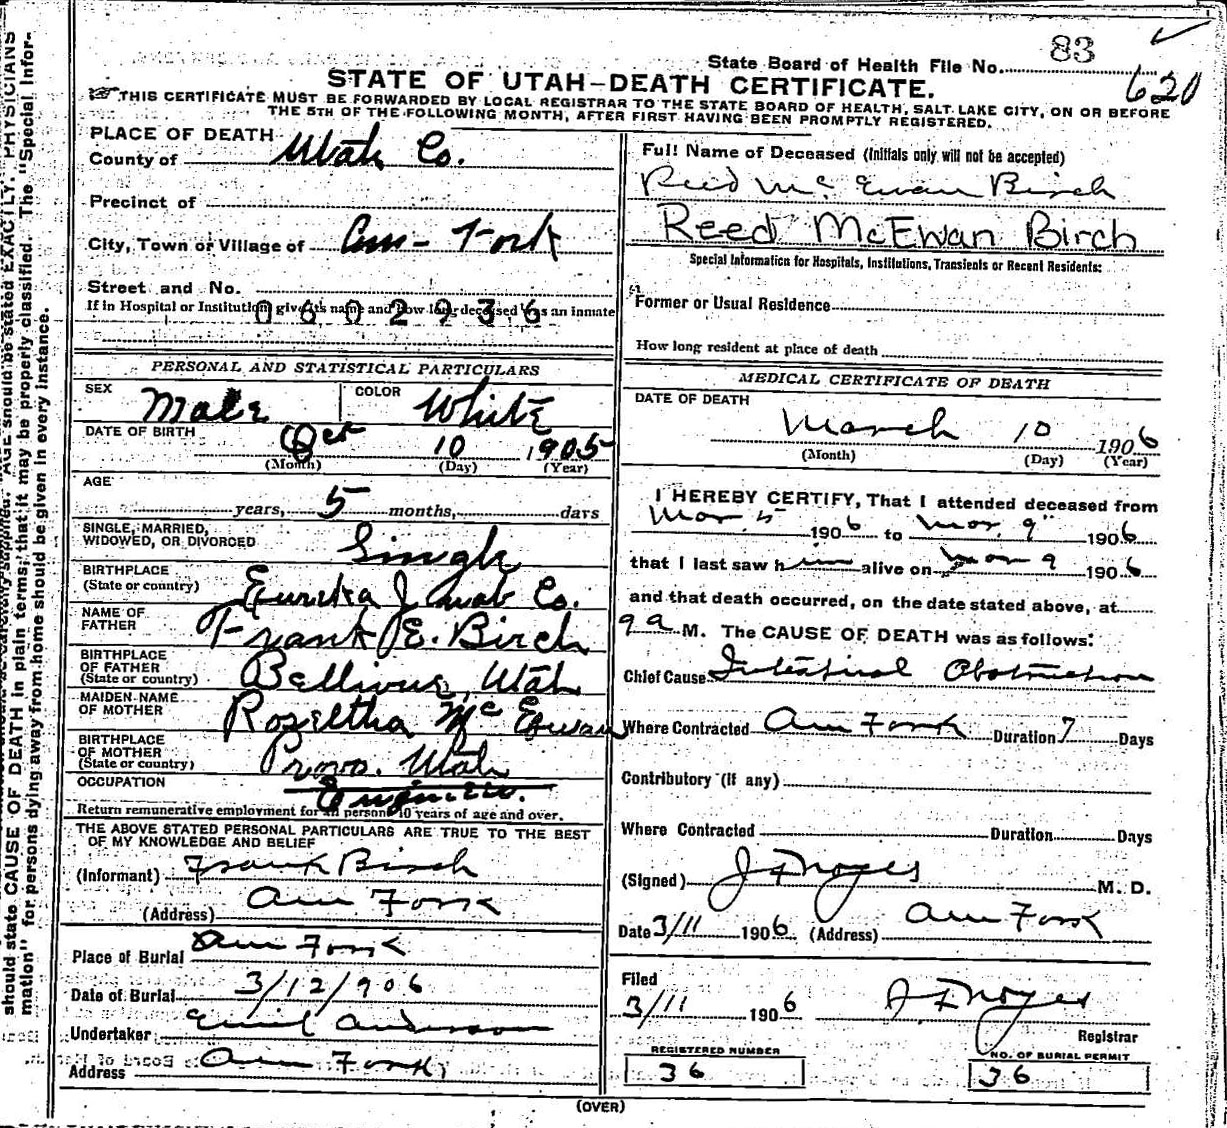 83
State Board of Health File No.
620
STATE OF UTAH—DEATH CERTIFICATE.
THIS CERTIFICATE MUST BE FORWARDED BY LOCAL REGISTRAR TO THE STATE BOARD OF HEALTH, SALT LAKE CITY, ON OR BEFORE
THE 5TH OF THE FOLLOWING MONTH, AFTER FIRST HAVING BEEN PROMPTLY REGISTERED.
PLACE OF DEATH
County of Utah Co.
Precinct of
City, Town or Village of Am- Fork
Street and No.
If in Hospital or Institution give its name and how long deceased was an inmate
0602936
PERSONAL AND STATISTICAL PARTICULARS
SEX Male COLOR White
DATE OF BIRTH Oct 10 1905
(Month) (Day) (Year)
AGE
years, 5 months, days
SINGLE, MARRIED,
WIDOWED, OR DIVORCED Single
BIRTHPLACE
(State or country) Eureka Juab Co.
NAME OF
FATHER Frank E. Birch
BIRTHPLACE
OF FATHER
(State or country) Utah
MAIDEN NAME
OF MOTHER Rozeltha Mc Ewan
BIRTHPLACE
OF MOTHER
(State or country) Provo. Utah
OCCUPATION Engineer.
Return remunerative employment for all persons 10 years of age and over.
THE ABOVE STATED PERSONAL PARTICULARS ARE TRUE TO THE BEST
OF MY KNOWLEDGE AND BELIEF
(Informant) Frank Birch
(Address) Am Fork
Place of Burial Am Fork
Date of Burial 3/12/906
Undertaker Emil Anderson
Address Am Fork
Full Name of Deceased (Initials only will not be accepted)
Reed Mc Ewan Birch
Reed McEwan Birch
Special Information for Hospitals, Institutions, Transients or Recent Residents:
Former or Usual Residence
How long resident at place of death
MEDICAL CERTIFICATE OF DEATH
DATE OF DEATH
March 10 1906
(Month) (Day) (Year)
I HEREBY CERTIFY, That I attended deceased from
Mar. 5 1906 to Mar. 9" 1906
that I last saw him alive on Mar 9 1906
and that death occurred, on the date stated above, at
9 a. M. The CAUSE OF DEATH was as follows:
Chief Cause Intestinal Obstruction
Where Contracted Am Fork Duration 7 Days
Contributory (if any)
Where Contracted Duration Days
(Signed) J F Noyes M. D.
Date 3/11 1906 (Address) Am Fork
Filed
3/11 1906 J F Noyes
Registrar
REGISTERED NUMBER
36
NO. OF BURIAL PERMIT
36
(OVER)
should state CAUSE OF DEATH in plain terms, that it may be properly classified. The "Special Infor-
mation" for persons dying away from home should be given in every instance.